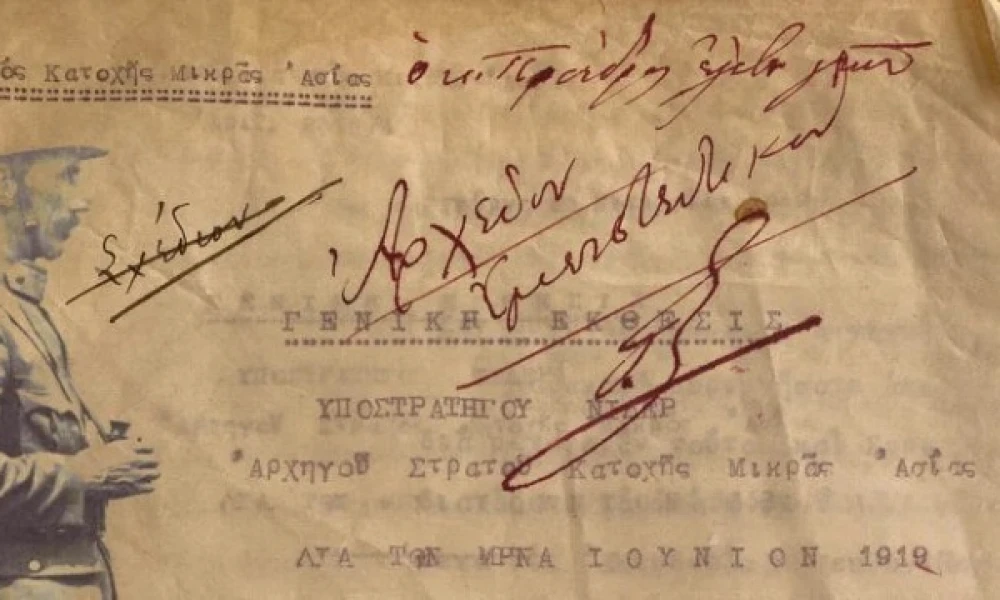 ός Κατοχῆς Μικρᾶς Ἀσίας
ὁ κ. Πρόεδρος ἔλαβε
Σχέδιον
Ἀρχεῖον
ἐμπιστευτικόν
ΓΕΝΙΚΗ ΕΚΘΕΣΙΣ
ΥΠΟΣΤΡΑΤΗΓΟΥ ΝΙΔΕΡ
Ἀρχηγοῦ Στρατοῦ Κατοχῆς Μικρᾶς Ἀσίας
ΔΙΑ ΤΟΝ ΜΗΝΑ ΙΟΥΝΙΟΝ 1919